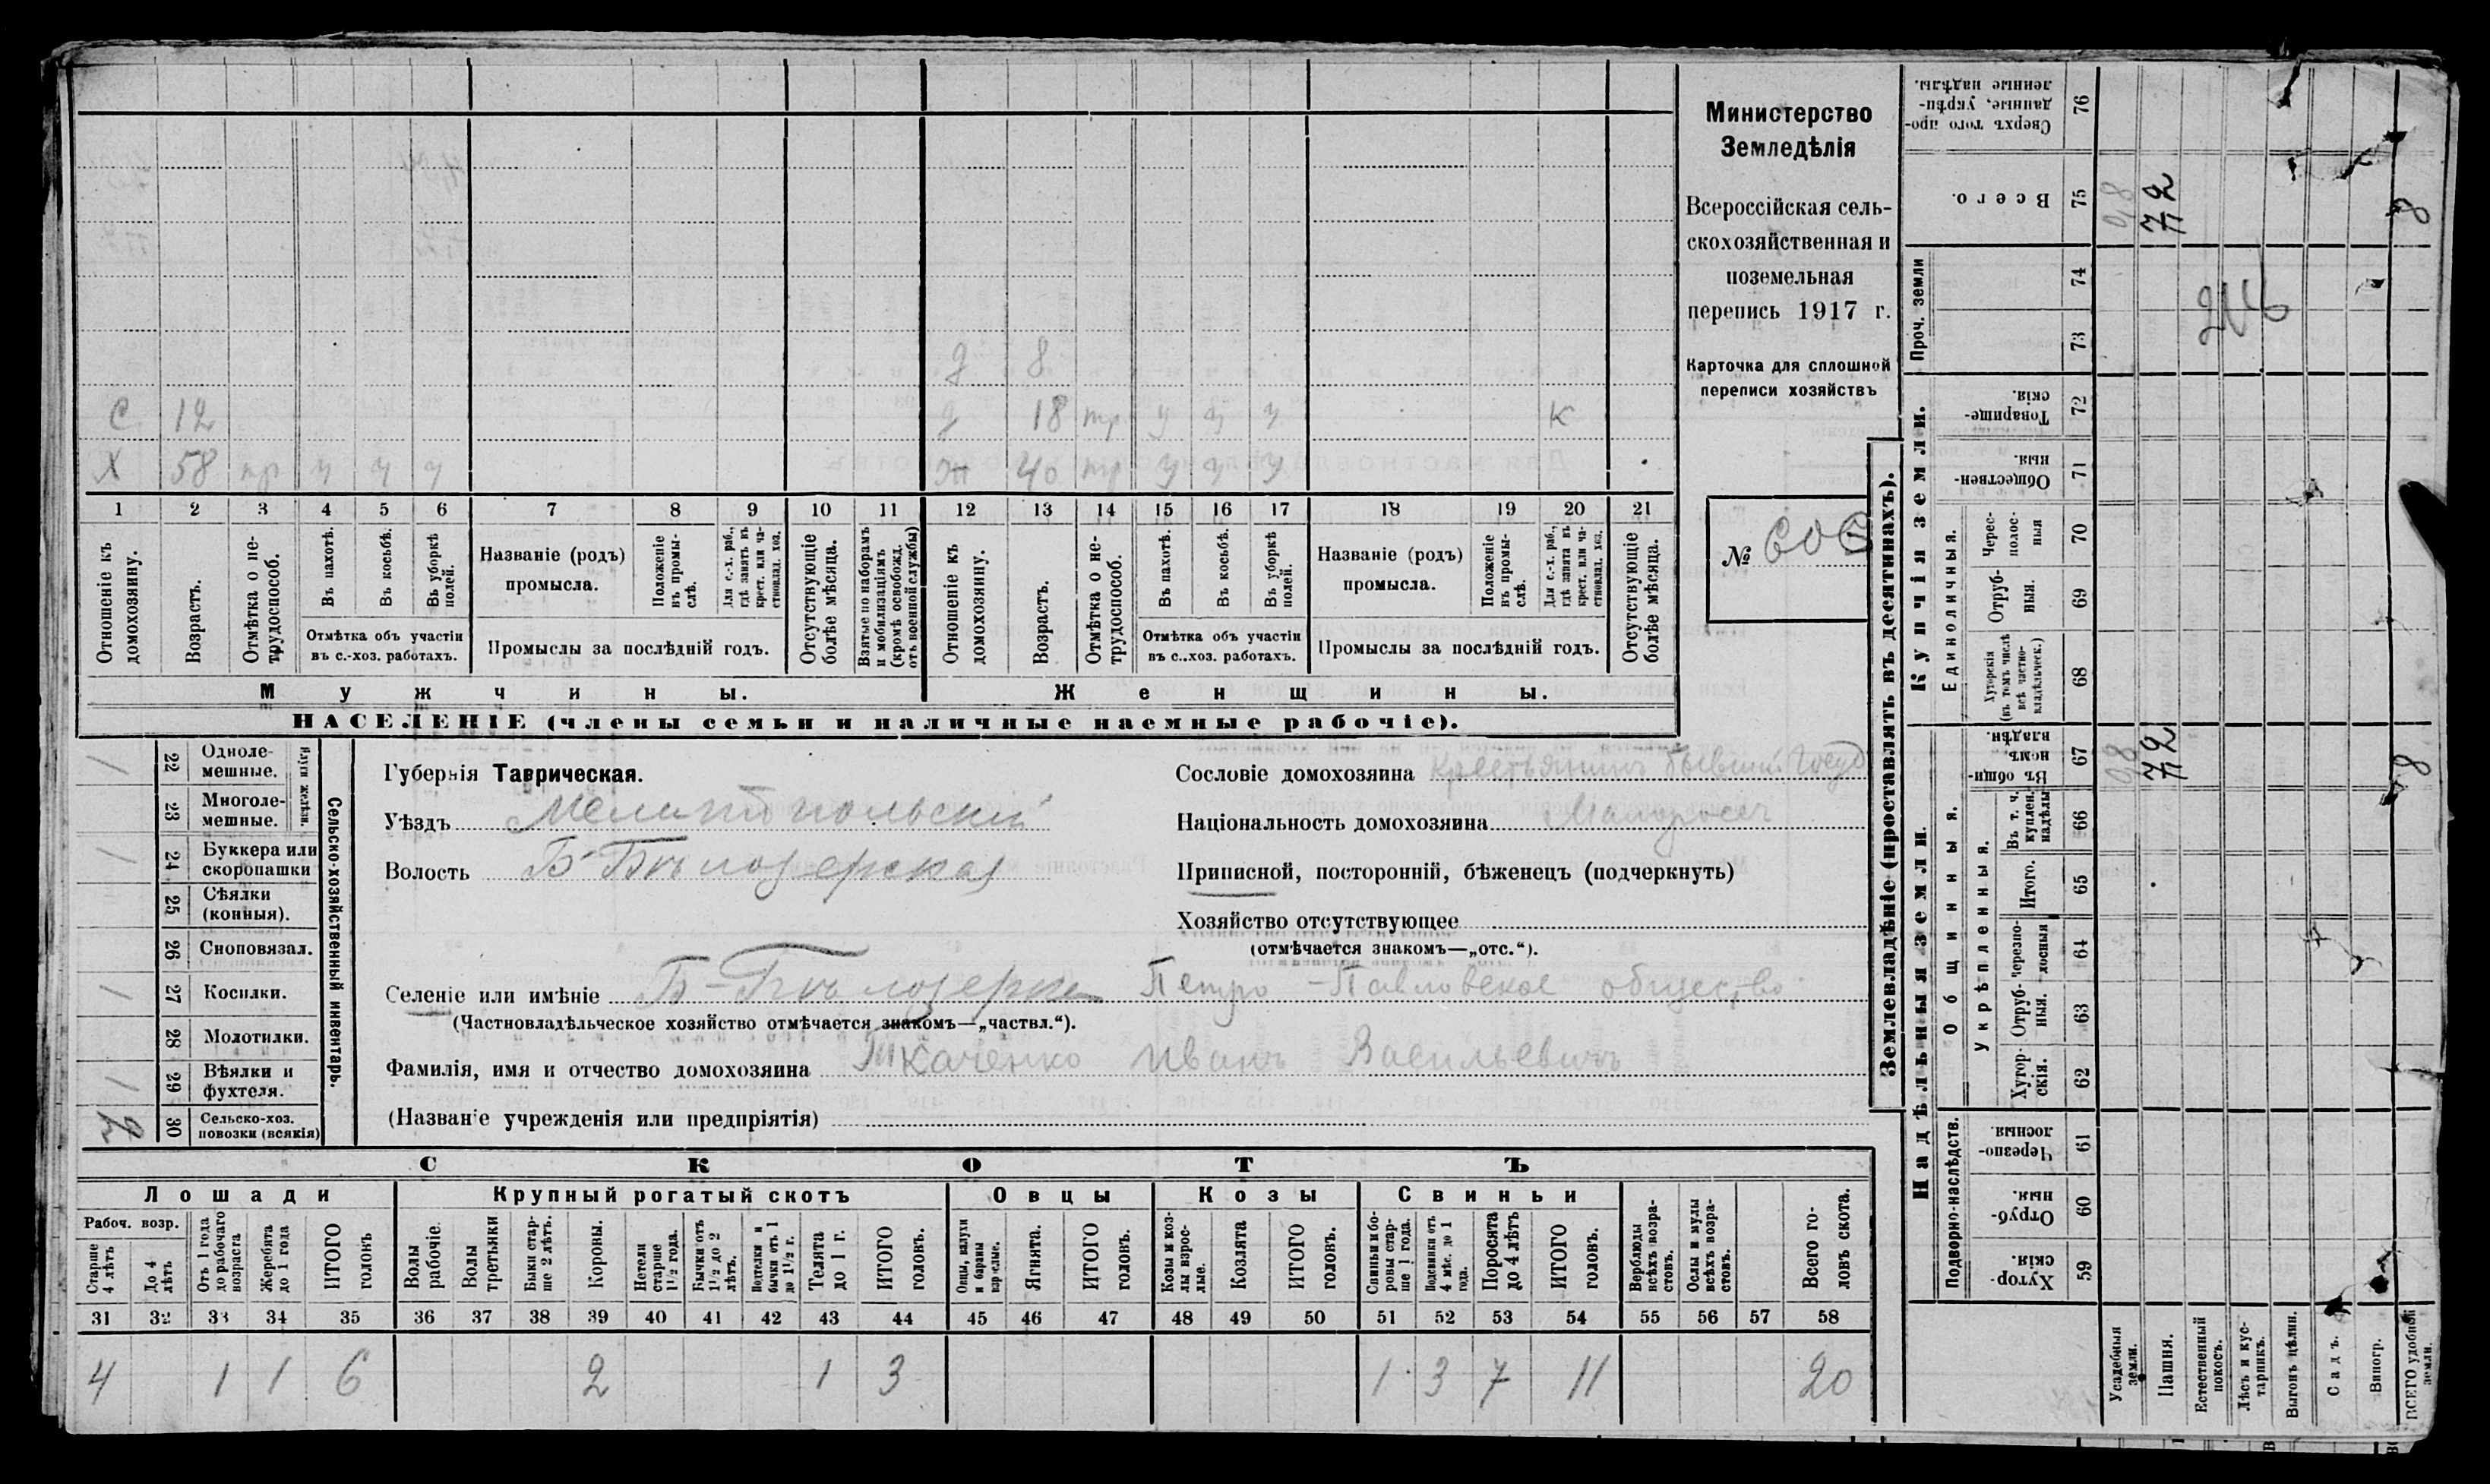 Министерство
Земледѣлія
Всероссійская сель-
скохозяйственная и
поземельная
перепись 1917 г.
Карточка для сплошной
переписи хозяйствъ
№
д 8
С 12 д 18 тр у у у К
Х 58 тр у у у ж 40 тр у у у
1 2 3 4 5 6 7 8 9 10 11 12 13 14 15 16 17 18 19 20 21
Отношеніе къ домохозяину.
Возрастъ.
Отмѣтка о не-трудоспособ.
Въ пахотѣ.
Въ косьбѣ.
Въ уборкѣ полей.
Отмѣтка объ участіи
въ с.-хоз. работахъ.
Названіе (родъ)
промысла.
Положеніе въ промы-слѣ.
Для с.-х. раб., гдѣ занятъ въ крест. или ча-стновлад. хоз.
Промыслы за послѣдній годъ.
Отсутствующіе болѣе мѣсяца.
Взятые по наборамъ и мобилизаціямъ (кромѣ освобожд. отъ военной службы)
Отношеніе къ домохозяину.
Возрастъ.
Отмѣтка о не-трудоспособ.
Въ пахотѣ.
Въ косьбѣ.
Въ уборкѣ полей.
Отмѣтка объ участіи
въ с..хоз. работахъ.
Названіе (родъ)
промысла.
Положеніе въ промы-слѣ.
Для с.-х. раб., гдѣ занята въ крест. или ча-стновлад. хоз.
Промыслы за послѣдній годъ.
Отсутствующіе болѣе мѣсяца.
Мужчины. Женщины.
НАСЕЛЕНІЕ (члены семьи и наличные наемные рабочіе).
Сельско-хозяйственный инвентарь.
Плуги желѣзн.
22 Одноле-мешные. 1
23 Многоле-мешные.
24 Буккера или скоропашки 1
25 Сѣялки (конныя).
26 Сноповязал.
27 Косилки. 1
28 Молотилки.
29 Вѣялки и фухтеля. 1
30 Сельско-хоз. повозки (всякія) 2
Губернія Таврическая.
Уѣздъ Мелитопольскій
Волость Б-Бѣлозерская
Сословіе домохозяина крестьянинъ бывший Госуд
Національность домохозяина Малоросс
Приписной, посторонній, бѣженецъ (подчеркнуть)
Хозяйство отсутствующее
(отмѣчается знакомъ—„отс.“).
Селеніе или имѣніе Б-Бѣлозерка Петро-Павловское общество
(Частновладѣльческое хозяйство отмѣчается знакомъ—„частвл.“).
Фамилія, имя и отчество домохозяина Ткаченко Иванъ Васильевичъ
(Названіе учрежденія или предпріятія)
СКОТЪ
Лошади Крупный рогатый скотъ Овцы Козы Свиньи
Рабоч. возр.
Старше 4 лѣтъ
До 4 лѣтъ
Отъ 1 года до рабочаго возраста
Жеребята до 1 года
ИТОГО головъ
Волы рабочіе.
Волы третьяки
Быки стар-ше 2 лѣтъ.
Коровы.
Нетели старше 1½ года.
Бычки отъ 1½ до 2 лѣтъ.
Нетелки и бычки отъ 1 до 1½ г.
Телята до 1 г.
ИТОГО головъ.
Овцы, валухи и бараны взрослые.
Ягнята.
ИТОГО головъ.
Козы и коз-лы взрос-лые.
Козлята
ИТОГО головъ.
Свиньи и бо-ровы стар-ше 1 года.
Подсвинки отъ 4 мѣс. до 1 года.
Поросята до 4 лѣтъ
ИТОГО головъ.
Верблюды всѣхъ возра-стовъ.
Ослы и мулы всѣхъ возра-стовъ.
Всего го-ловъ скота.
31 32 33 34 35 36 37 38 39 40 41 42 43 44 45 46 47 48 49 50 51 52 53 54 55 56 57 58
4 1 1 6 2 1 3 1 3 7 11 20
Землевладѣніе (проставлять въ десятинахъ).
Надѣльныя земли. Купчія земли. Проч. земли
Подворно-наслѣдств. Общинныя. Укрѣпленныя. Единоличныя.
59 Хутор-скія.
60 Отруб-ныя.
61 Черезпо-лосныя
62 Хутор-скія.
63 Отруб-ныя.
64 Черезпо-лосныя
65 Итого.
66 Въ т. ч. куплен. надѣлы
67 Въ общин-номъ владѣн. 72 8
68 Хуторскія (въ томъ числѣ всѣ частно-владѣльческ.)
69 Отруб-ныя.
70 Черес-полос-ныя
71 Обществен-ныя.
72 Товарище-скія.
73
74
75 Всего. 72 8
76 Сверхъ того про-данные, укрѣп-ленные надѣлы.
Усадебныя земли.
Пашня.
Естественный покосъ.
Лѣсъ и кус-тарникъ.
Выгонъ цѣлин.
Садъ.
Виногр.
ВСЕГО удобной земли.